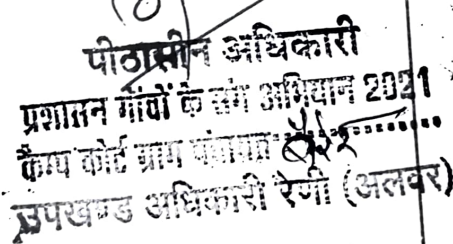 पीठासीन अधिकारी
प्रशासन गांवों के संग अभियान 2021
कैम्प कोर्ट ग्राम पंचायत
उपखण्ड अधिकारी रैणी (अलवर)